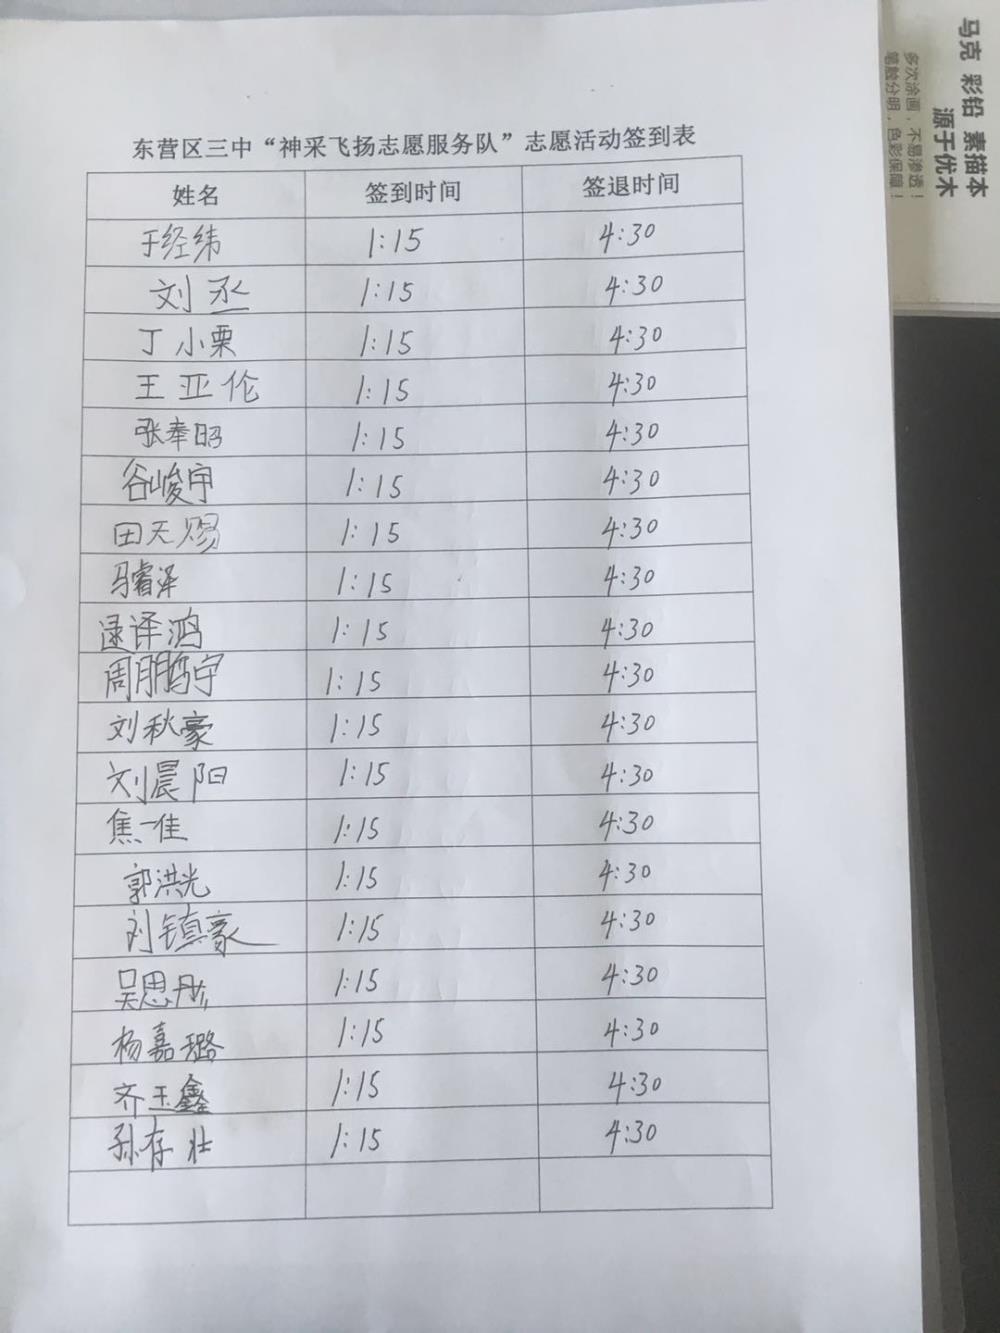 东营区三中“神采飞扬志愿服务队”志愿活动签到表
姓名 签到时间 签退时间
于经纬 1:15 4:30
刘丞 1:15 4:30
丁小栗 1:15 4:30
王亚伦 1:15 4:30
张奉昭 1:15 4:30
谷峻宇 1:15 4:30
田天赐 1:15 4:30
马睿泽 1:15 4:30
逯译鸿 1:15 4:30
周鹏宇 1:15 4:30
刘秋豪 1:15 4:30
刘晨阳 1:15 4:30
焦一佳 1:15 4:30
郭洪光 1:15 4:30
刘镇豪 1:15 4:30
吴思彤 1:15 4:30
杨嘉璐 1:15 4:30
齐玉鑫 1:15 4:30
孙存壮 1:15 4:30
马克 彩铅 素描本
源于优木
多次涂画，不易渗透！
笔触分明，色彩保障！